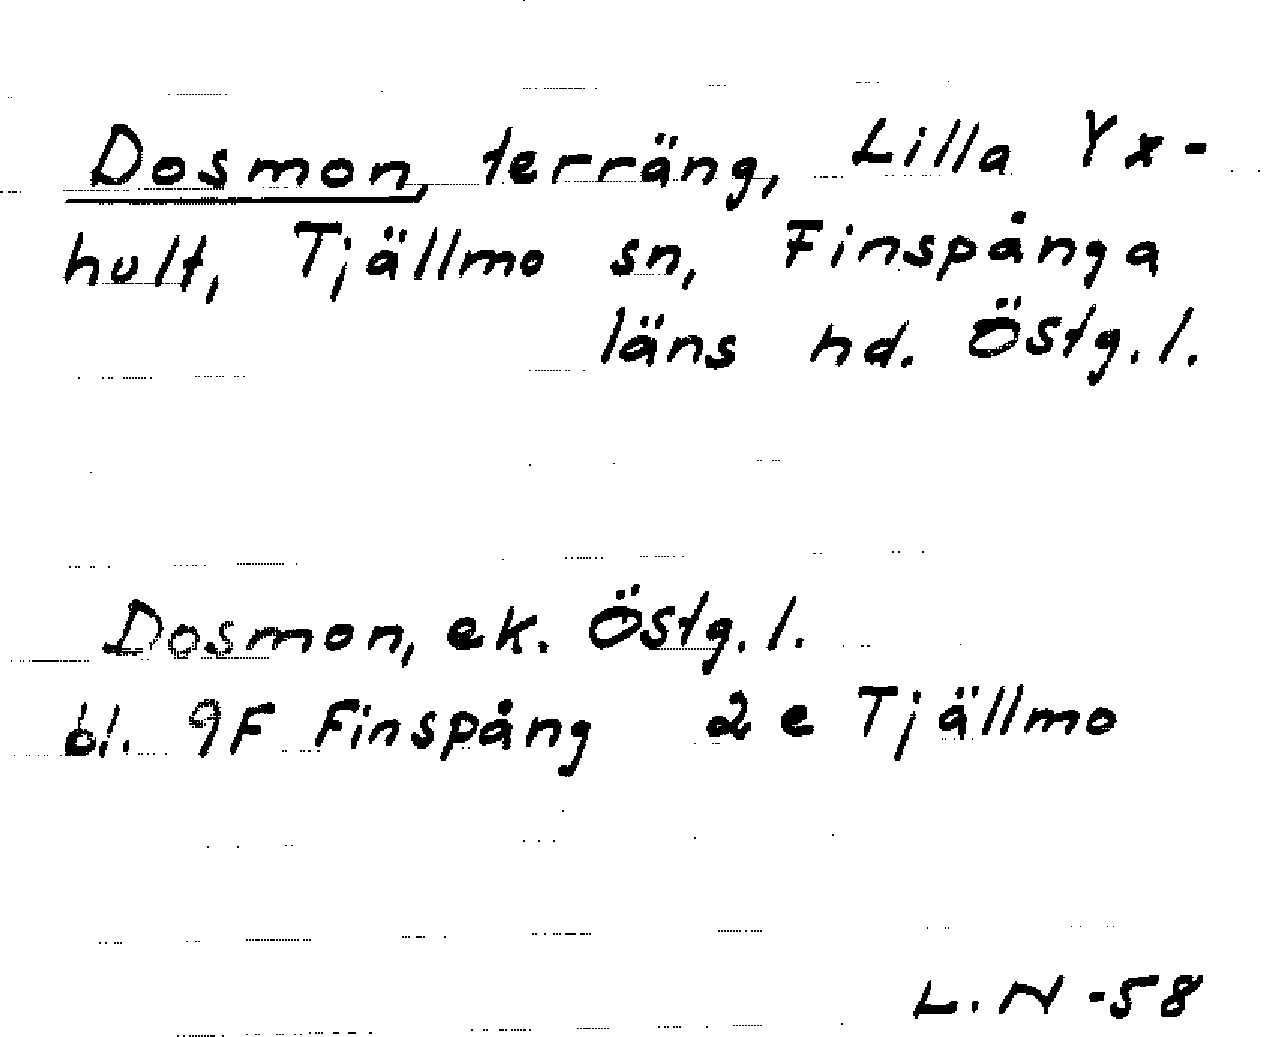 Dosmon, terräng, Lilla Yx-
hult, Tjällmo sn, Finspånga
läns hd. Östg. l.
Dosmon, ek. Östg. l.
bl. 9F Finspång 2 e Tjällmo
L. N -58